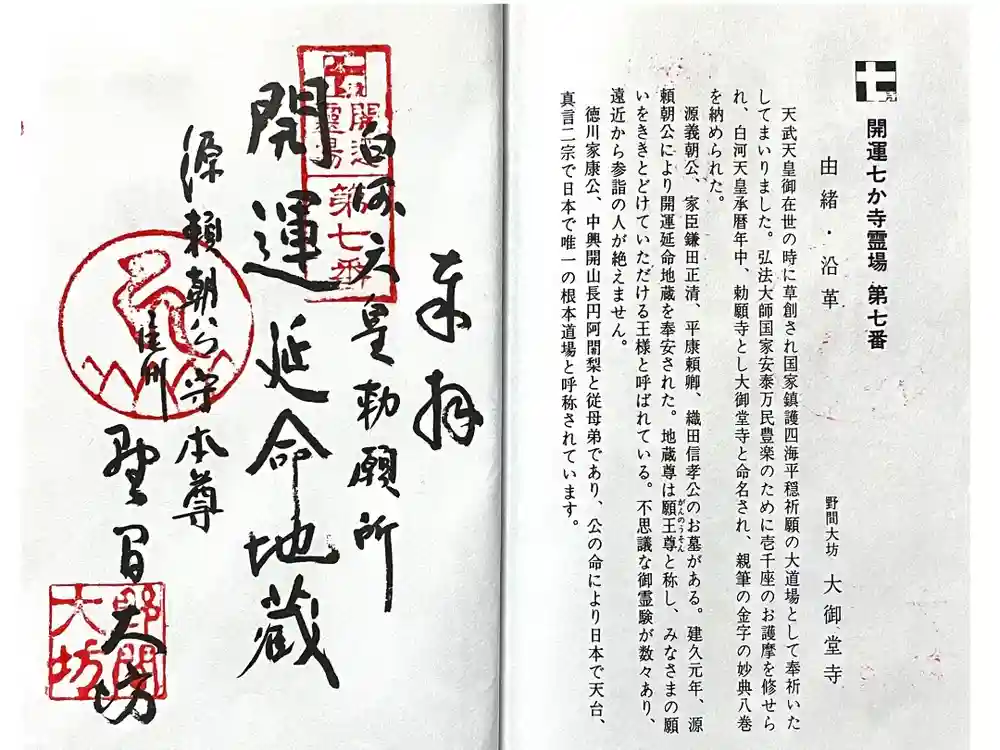 開運七か寺霊場 第七番
由緒・沿革
野間大坊 大御堂寺
天武天皇御在世の時に草創され国家鎮護四海平穏祈願の大道場として奉祈いた
してまいりました。弘法大師国家安泰万民豊楽のために壱千座のお護摩を修せら
れ、白河天皇承暦年中、勅願寺とし大御堂寺と命名され、親筆の金字の妙典八巻
を納められた。
源義朝公、家臣鎌田正清、平康頼卿、織田信孝公のお墓がある。建久元年、源
頼朝公により開運延命地蔵を奉安された。地蔵尊は願王尊と称し、みなさまの願
がんのうそん
いをききとどけていただける王様と呼ばれている。不思議な御霊験が数々あり、
遠近から参詣の人が絶えません。
徳川家康公、中興開山長円阿闍梨と従母弟であり、公の命により日本で天台、
真言二宗で日本で唯一の根本道場と呼称されています。
奉拝
白河天皇勅願所
開運延命地蔵
源頼朝公守本尊
野間大坊
開運
霊場
第七番
野間
大坊